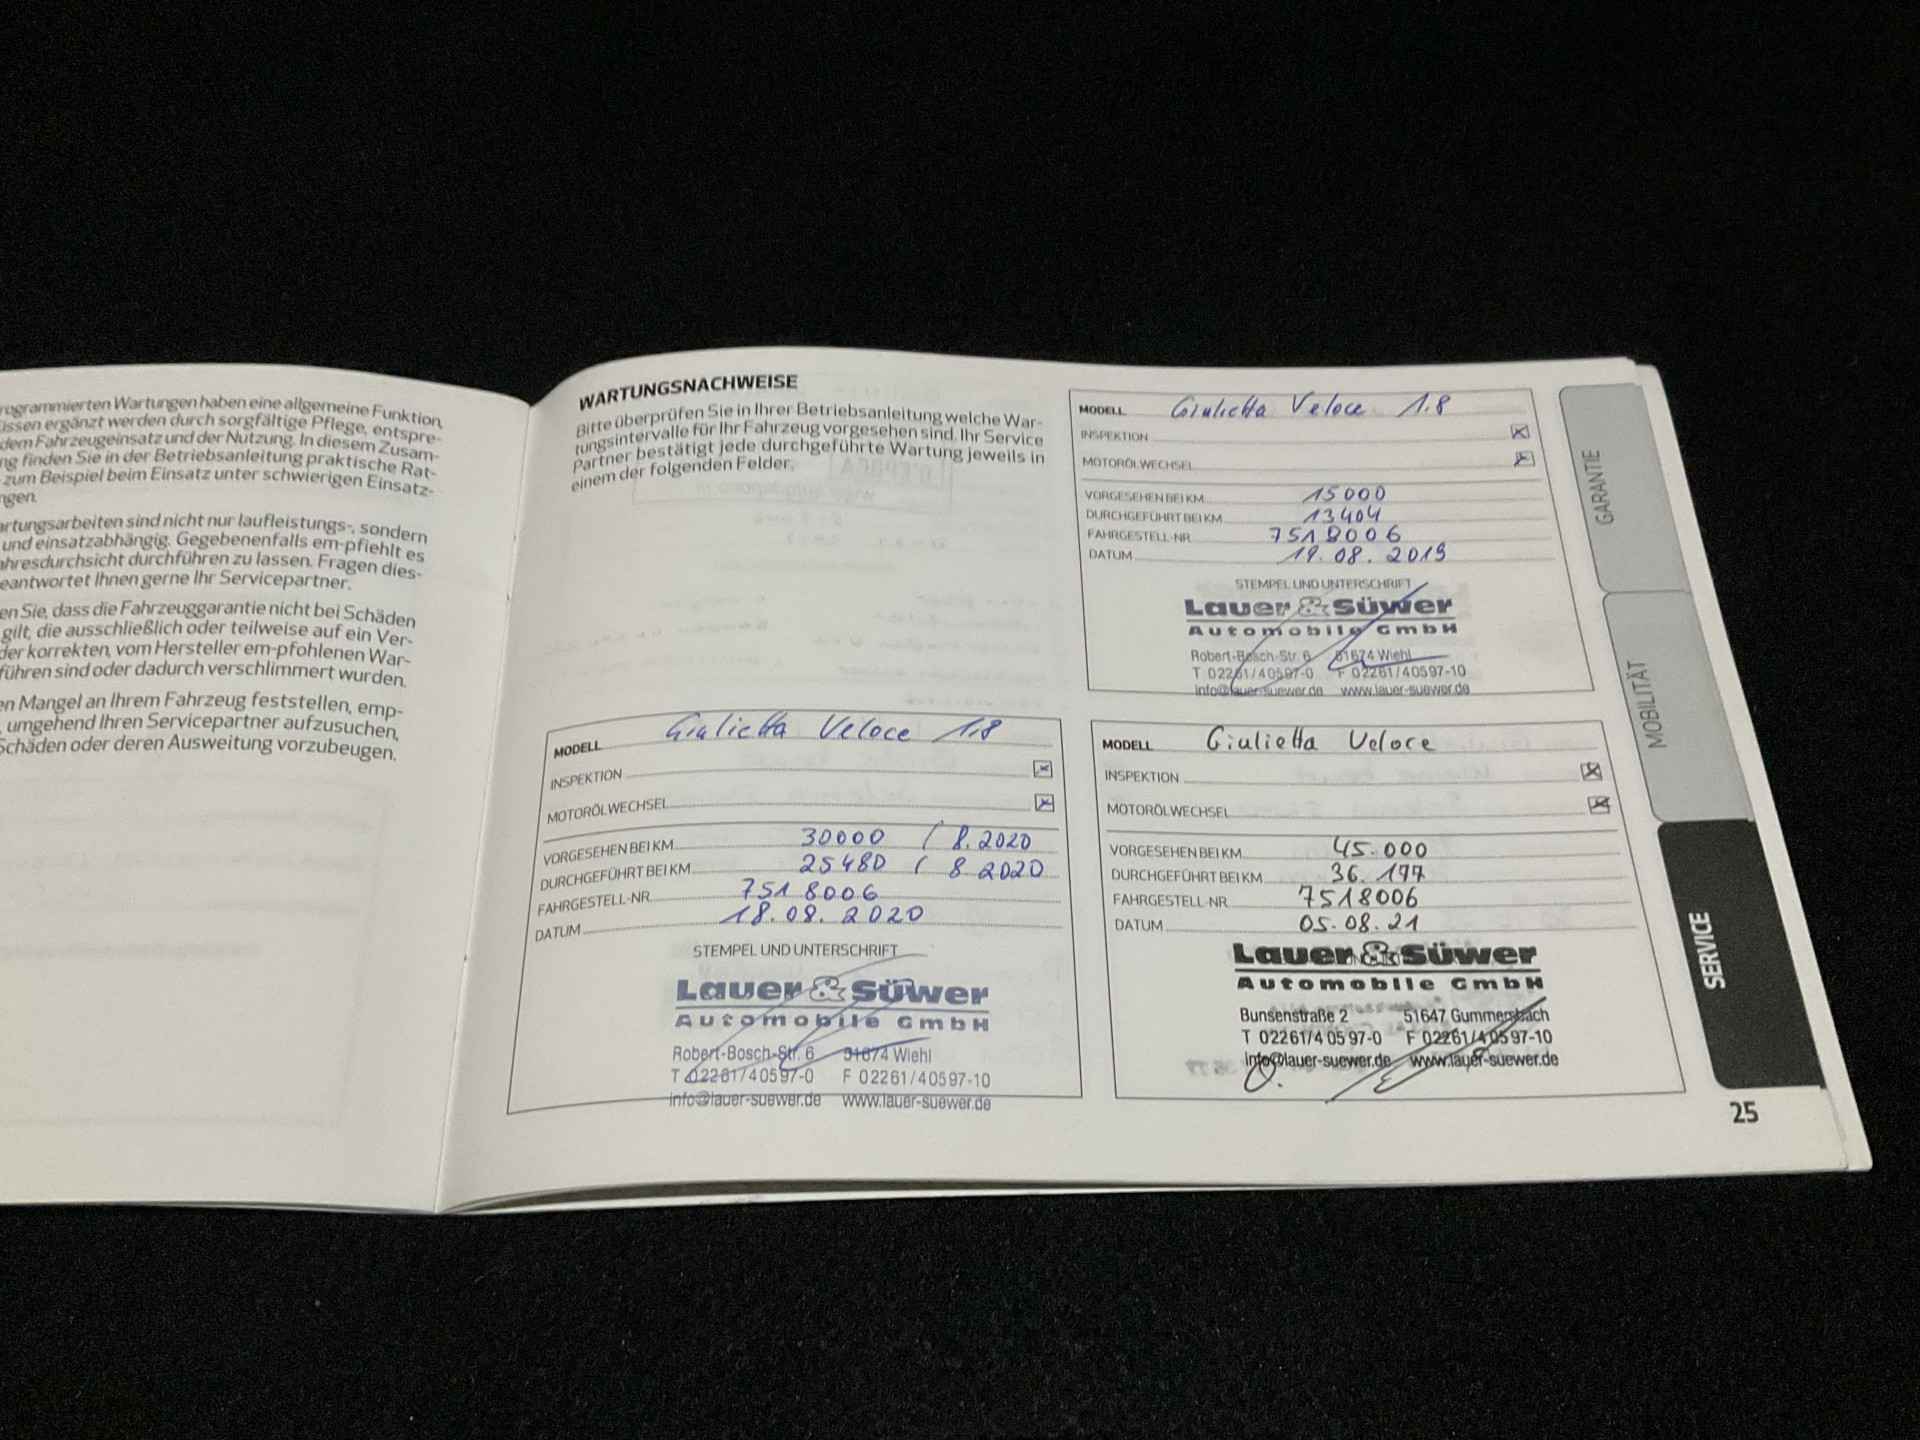 rogrammierten Wartungen haben eine allgemeine Funktion,
üssen ergänzt werden durch sorgfältige Pflege, entspre-
dem Fahrzeugeinsatz und der Nutzung. In diesem Zusam-
ng finden Sie in der Betriebsanleitung praktische Rat-
zum Beispiel beim Einsatz unter schwierigen Einsatz-
ngen.
artungsarbeiten sind nicht nur laufleistungs-, sondern
und einsatzabhängig. Gegebenenfalls em-pfiehlt es
ahresdurchsicht durchführen zu lassen. Fragen dies-
eantwortet Ihnen gerne Ihr Servicepartner.
en Sie, dass die Fahrzeuggarantie nicht bei Schäden
gilt, die ausschließlich oder teilweise auf ein Ver-
der korrekten, vom Hersteller em-pfohlenen War-
führen sind oder dadurch verschlimmert wurden.
en Mangel an Ihrem Fahrzeug feststellen, emp-
, umgehend Ihren Servicepartner aufzusuchen,
Schäden oder deren Ausweitung vorzubeugen.
WARTUNGSNACHWEISE
Bitte überprüfen Sie in Ihrer Betriebsanleitung welche War-
tungsintervalle für Ihr Fahrzeug vorgesehen sind. Ihr Service
Partner bestätigt jede durchgeführte Wartung jeweils in
einem der folgenden Felder.
MODELL Giulietta Veloce 1.8
INSPEKTION
MOTORÖLWECHSEL
VORGESEHEN BEI KM 15000
DURCHGEFÜHRT BEI KM 13404
FAHRGESTELL-NR 7518006
DATUM 19.08.2019
STEMPEL UND UNTERSCHRIFT
Lauer & Süwer
Automobile GmbH
Robert-Bosch-Str. 6 51674 Wiehl
T 02261/40597-0 F 02261/40597-10
info@lauer-suewer.de www.lauer-suewer.de
MODELL Giulietta Veloce 1.8
INSPEKTION
MOTORÖLWECHSEL
VORGESEHEN BEI KM 30000 / 8.2020
DURCHGEFÜHRT BEI KM 25480 / 8 2020
FAHRGESTELL-NR 7518006
DATUM 18.08.2020
STEMPEL UND UNTERSCHRIFT
Lauer & Süwer
Automobile GmbH
Robert-Bosch-Str. 6 51674 Wiehl
T 02261/40597-0 F 02261/40597-10
info@lauer-suewer.de www.lauer-suewer.de
MODELL Giulietta Veloce
INSPEKTION
MOTORÖLWECHSEL
VORGESEHEN BEI KM 45.000
DURCHGEFÜHRT BEI KM 36.177
FAHRGESTELL-NR 7518006
DATUM 05.08.21
Lauer & Süwer
Automobile GmbH
Bunsenstraße 2 51647 Gummersbach
T 02261/4 05 97-0 F 02261/4 05 97-10
info@lauer-suewer.de www.lauer-suewer.de
GARANTIE
MOBILITÄT
SERVICE
25